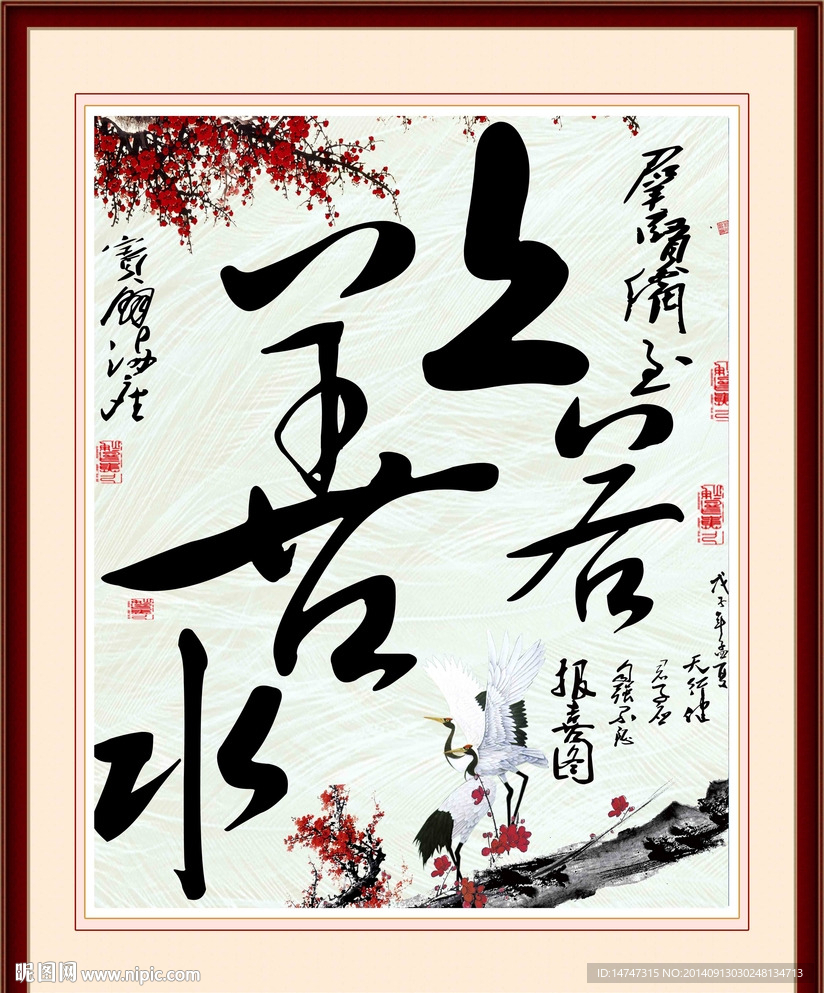 上善若水
羣賢備至
戊子年孟夏
天行健
君子应
自强不息
报喜图
賓朋满座
昵图网 www.nipic.com
ID:14747315 NO:20140913030248134713